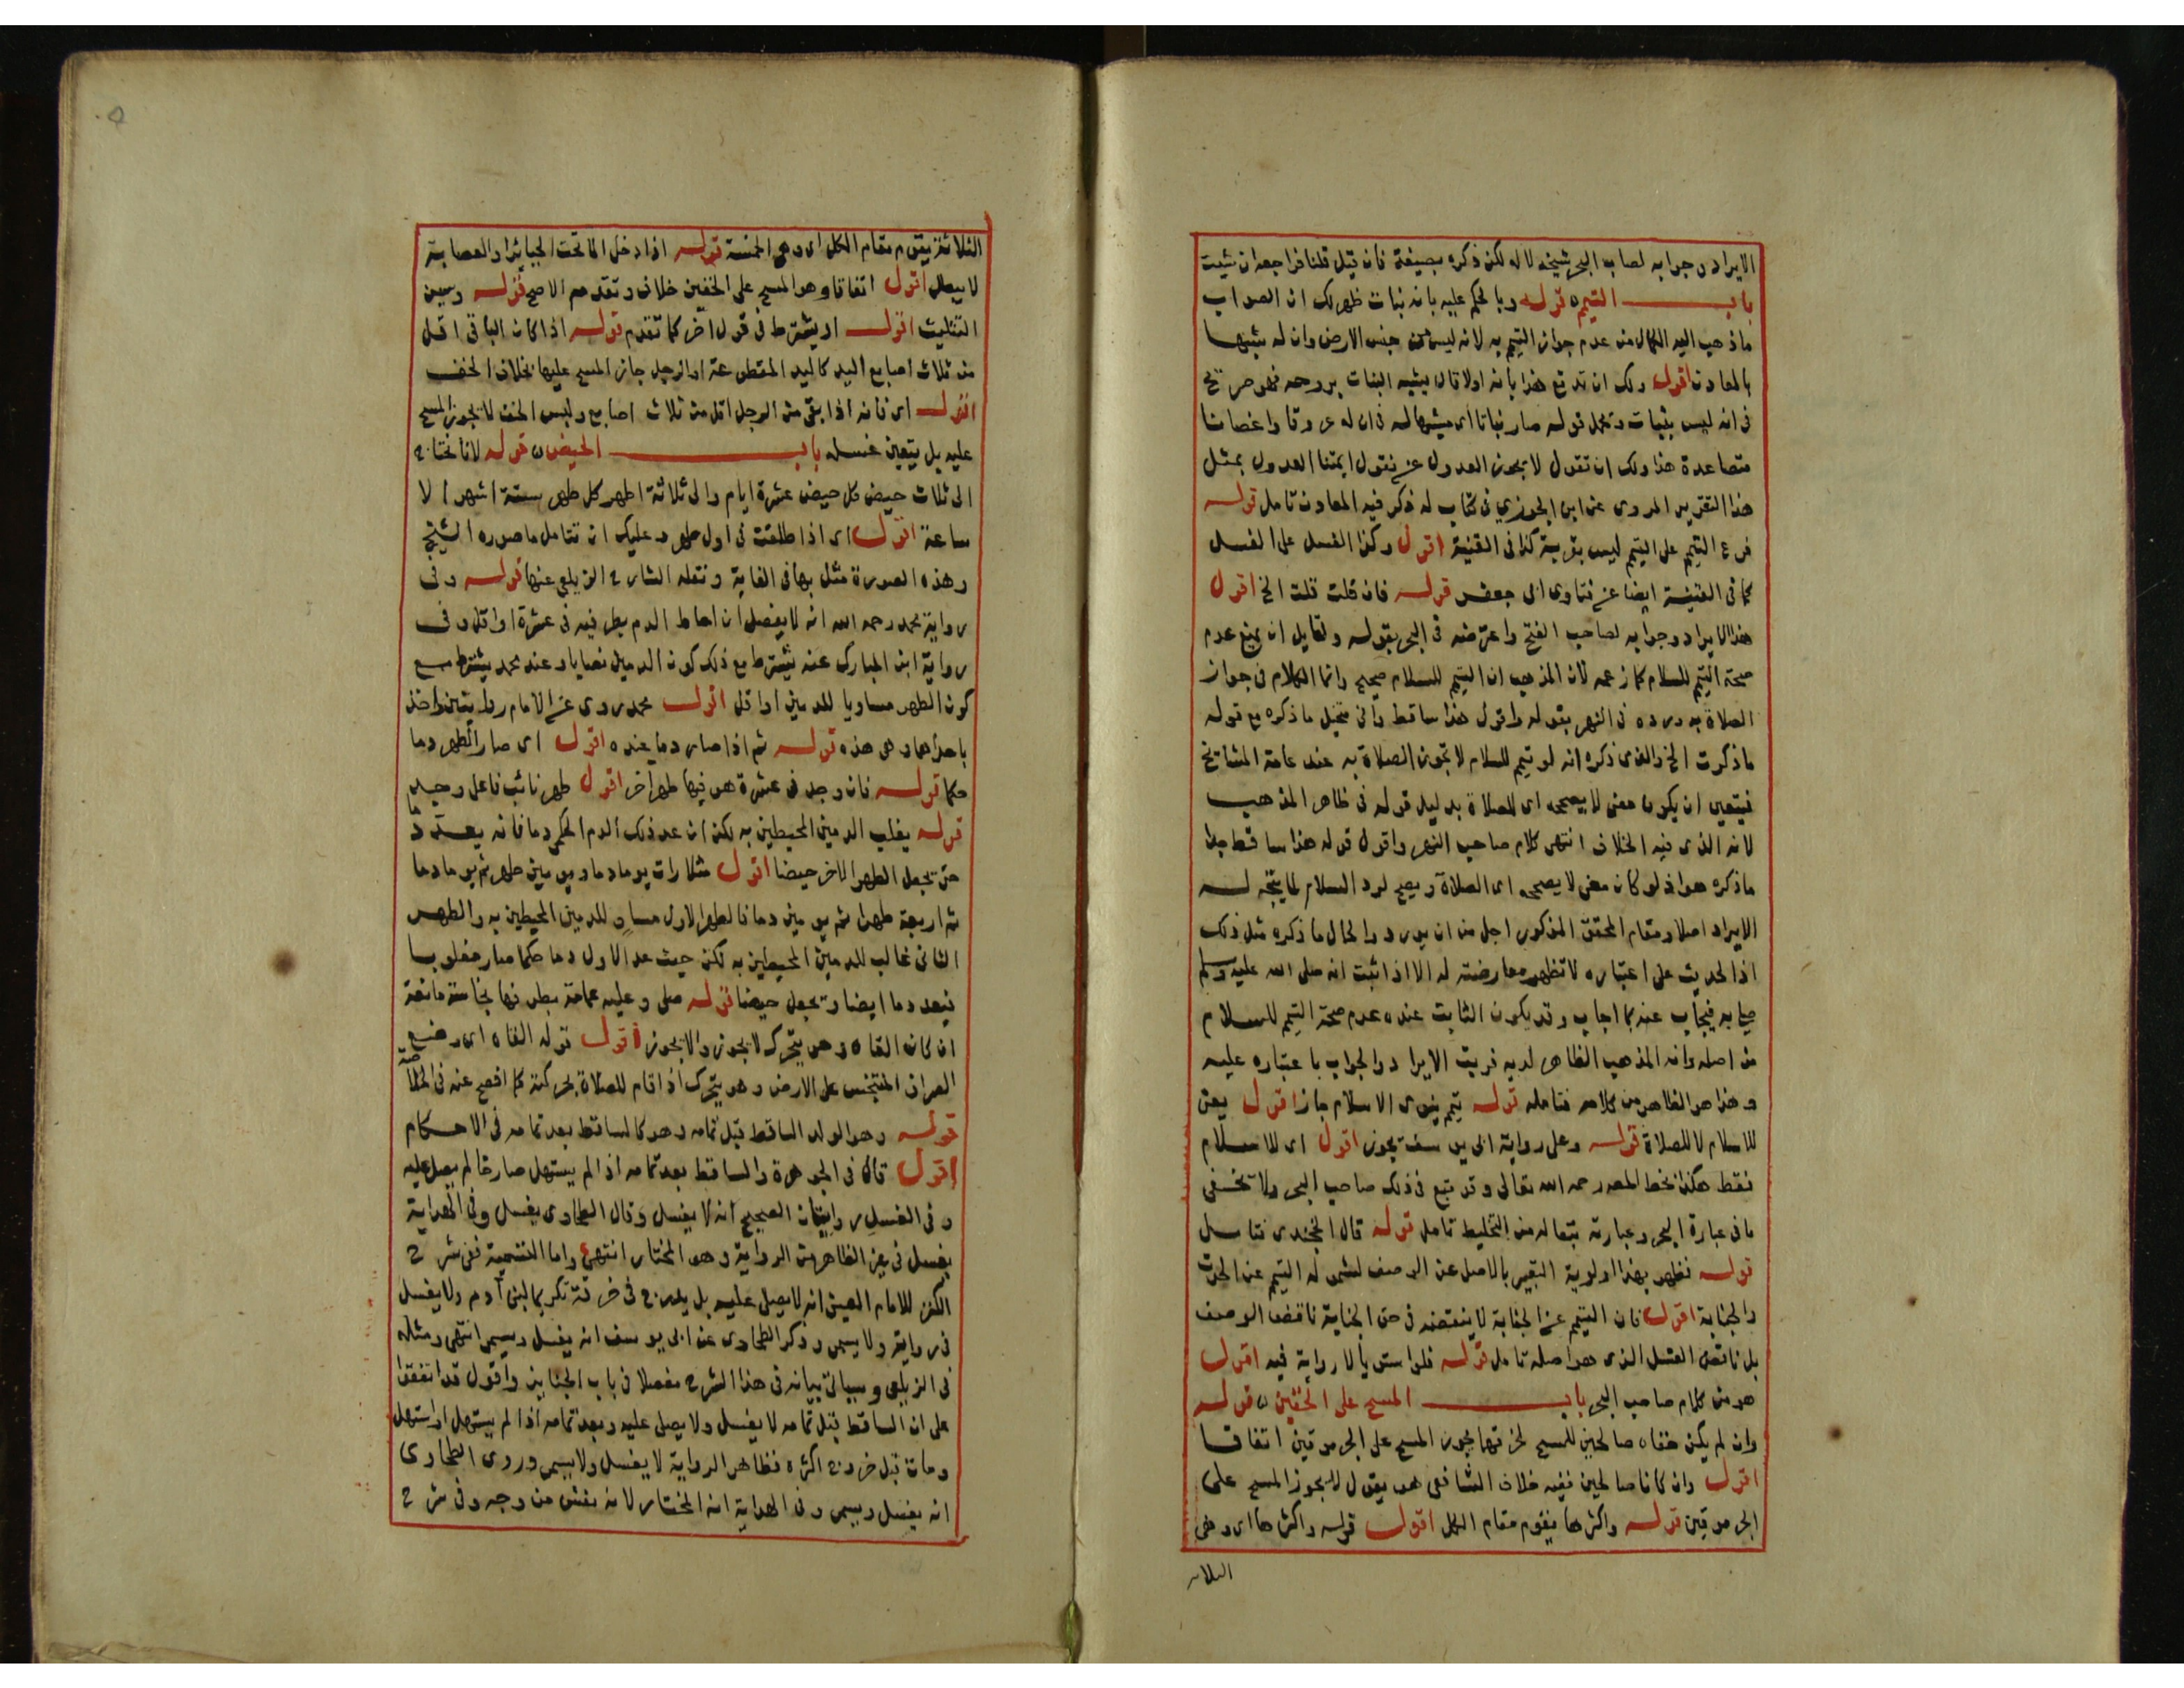 الايراد وجوابه لصاحب البحر شيخه لا له لكن ذكره بصيغة فان قيل قلنا فراجعه ان شئت
باب التيمم قوله وبالحكم عليه بانه نبات ظهر لك ان الصواب
ما ذهب اليه الكمال من عدم جواز التيمم به لانه ليس من جنس الارض وان له شبها
بالمعادن اقول ولك ان تدفع هذا بأنه اولا قال يشبه النبات بروحه فهو صريح
في انه ليس بنبات ويحمل قوله صار نباتا اي مشبها له في ان له عروقا واغصانا
متصاعدة هذا ولك ان تقول لا يجوز العدول عن نقول ايمتنا العدول بمثل
هذا التقرير المروى عن ابن الجوزي في كتاب له ذكر فيه المعادن تامل قوله
فرع التيمم على التيمم ليس بقربة كذا في القنية اقول وكذا الغسل على الغسل
كما في القنية ايضا عن فتاوى ابي جعفر قوله فان قلت قلت الخ اقول
هذا الايراد وجوابه لصاحب الفتح واعترضه في البحر بقوله ولقايل ان يمنع عدم
صحة التيمم للسلام كما زعمه لان المذهب ان التيمم للسلام صحيح وانما الكلام في جواز
الصلاة به ورده في النهر بقوله واقول هذا ساقط وأنى يتخيل ما ذكره مع قوله
ما ذكرت الخ والذى ذكره انه لو تيمم للسلام لا تجوز الصلاة به عند عامة المشائخ
فيتعين ان يكون معنى لا يصح اى للصلاة بدليل قوله في ظاهر المذهب
لانه الذى فيه الخلاف انتهى كلام صاحب النهر واقول قوله هذا ساقط جل
ما ذكره هو اذ لو كان معنى لا يصح اى الصلاة ويصح لرد السلام لما يتجه له
الايراد اصلا ومقام المحقق المذكور اجل من ان يورد والحال ما ذكره مثل ذلك
اذ الحديث على اعتباره لا تظهر معارضته له الا اذا ثبت انه صلى الله عليه وسلم
صلى به فيجاب عنه بما اجاب وقد يكون الثابت عنده عدم صحة التيمم للسلام
من اصله وانه المذهب الظاهر لديه فريت الايراد والجواب باعتباره عليه
وهذا هو الظاهر من كلامه فتامله قوله تيمم ينوى الاسلام جاز اقول يعنى
للاسلام لا للصلاة قوله وعلى رواية ابي يوسف تجوز اقول اى للاسلام
فقط هكذا بخط المص رحمه الله تعالى وقد تبع في ذلك صاحب البحر ولا يخفى
ما في عبارة البحر وعبارته تبعا له من التخليط تامل قوله قال الخجندى نتاسل
قوله فظهر بهذا اولوية التعبير بالاصل عن الوصف لشموله التيمم عن الحدث
والجنابة اقول فان التيمم عن الجنابة لا ينقضه في حق الجنابة ناقض الوصف
بل ناقض الغسل الذى هو اصله تامل قوله فلو استويا لا رواية فيه اقول
هو من كلام صاحب البحر باب المسح على الخفين قوله
وان لم يكن خفاه صالحين للمسح لخرقهما يجوز المسح على الجرموقين اتفاقا
اقول وان كانا صالحين ففيه خلاف الشافعى هو يقول لا يجوز المسح على
الجرموقين قوله واكثرها يقوم مقام الكل اقول قوله واكثرها اى وهى
الثلاثة
الثلاثة يقوم مقام الكل اى وهى الخمسة قوله اذا دخل الما تحت الجبائر او العصابة
لا يبطل اقول اتفاقا وهو المسح على الخفين خلاف وتقدم الاصح قوله وسن
التثليث اقول او يشترط في قول آخر كما تقدم قوله اذا كان الباقى اقل
من ثلاث اصابع اليد كاليد المقطوعة او الرجل جاز المسح عليها بخلاف الخف
اقول اى فانه اذا بقى من الرجل اقل من ثلاث اصابع ولبس الخف لا يجوز المسح
عليه بل يتعين غسله باب الحيض قوله لانا نحتاج
الى ثلاث حيض كل حيض عشرة ايام والى ثلاثة اطهر كل طهر ستة اشهر الا
ساعة اقول اى اذا طلقت في اول طهر وعليك ان تتامل ما صوره الشيخ
وهذه الصورة مثل بها في الغاية ونقله الشارح الزيلعى عنها قوله وفى
رواية محمد رحمه الله انه لا يفصل ان احاط الدم بطرفيه في عشرة او اقل وفى
رواية ابن المبارك عنه يشترط مع ذلك كون الدمين نصابا وعند محمد يشترط مع
كون الطهر مساويا للدمين او اقل اقول محمد روى عن الامام روايتين واخذ
باحداهما وهى هذه قوله ثم اذا صار دما عنده اقول اى صار الطهر دما
حكما قوله فان وجد في عشرة هو فيها طهر آخر اقول طهر نائب فاعل وجد
قوله يغلب الدمين المحيطين به لكن ان عد ذلك الدم الحكمى دما فانه يعد دما
حتى يجعل الطهر الاخر حيضا اقول مثلا رات يوما دما ويومين طهر ثم يوما دما
ثم اربعة طهرا ثم يومين دما فالطهر الاول مساو للدمين المحيطين به والطهر
الثانى غالب للدمين المحيطين به لكن حيث عد الاول دما حكما صار مغلوبا
فيعد دما ايضا ويجعل حيضا قوله صلى وعليه عمامة بطرفها نجاسة مانعة
ان كان القاه وهو يتحرك لا يجوز والا يجوز اقول قوله القاه اى وضع
الطرف المتنجس على الارض وهو يتحرك اذا قام للصلاة بحركته كما افصح عنه في الخلاصة
قوله وهو الولد الساقط قبل تمامه وهو كالساقط بعد تمامه في الاحكام
اقول قال في الجوهرة والساقط بعد تمامه اذا لم يستهل صارخا لم يصل عليه
وفى الغسل روايتان الصحيح انه لا يغسل وقال الطحاوى يغسل وفى الهداية
يغسل في غير الظاهر من الرواية وهو المختار انتهى واما التسمية ففى شرح
الكنز للامام العينى انه لا يصلى عليه بل يدرج في خرقة تكريما لبنى آدم ولا يغسل
في رواية ولا يسمى وذكر الطحاوى عن ابى يوسف انه يغسل ويسمى انتهى ومثله
في الزيلعى وسياتى بيانه في هذا الشرح مفصلا في باب الجنايز واقول قد اتفقوا
على ان الساقط قبل تمامه لا يغسل ولا يصلى عليه وبعد تمامه اذا لم يستهل او استهل
ومات قبل خروج اكثره فظاهر الرواية لا يغسل ولا يسمى وروى الطحاوى
انه يغسل ويسمى وفى الهداية انه المختار لانه نفس من وجه وفى شرح